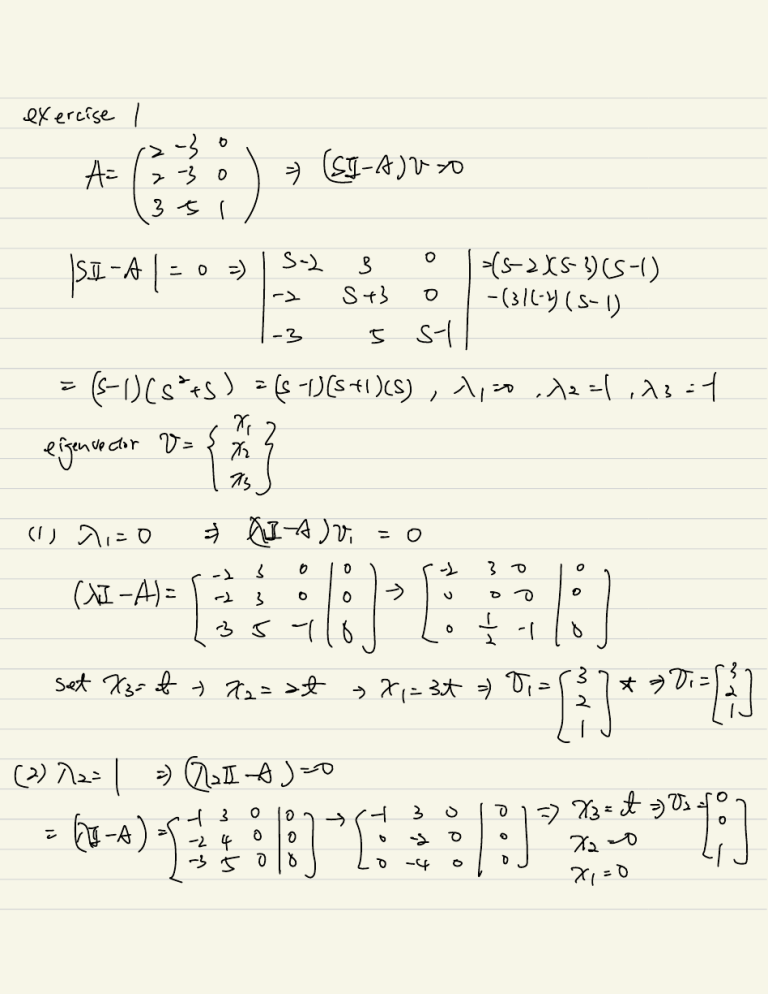 exercise 1
A = ( 2 -3 0
2 -3 0
3 -5 1 ) ⇒ (SI-A)v=0
|SI-A| = 0 ⇒ | S-2 3 0
-2 S+3 0
-3 5 S-1 | =(S-2)(S-3)(S-1)
-(3)(-2)(S-1)
= (S-1)(S²+S) = (S-1)(S+1)(S) , λ1=0 , λ2=1 , λ3=-1
eigenvector v = { x1
x2
x3 }
(1) λ1=0 ⇒ (λI-A)v1 = 0
(λI-A) = [ -2 3 0 | 0
-2 3 0 | 0
-3 5 -1 | 0 ] → [ -2 3 0 | 0
0 0 0 | 0
0 1/2 -1 | 0 ]
set x3=t → x2=2t → x1=3t ⇒ v1 = [ 3
2
1 ] t ⇒ v1 = [ 3
2
1 ]
(2) λ2=1 ⇒ (λ2I-A)=0
= (λI-A) = [ -1 3 0 | 0
-2 4 0 | 0
-3 5 0 | 0 ] → [ -1 3 0 | 0
0 -2 0 | 0
0 -4 0 | 0 ] ⇒ x3=t ⇒ v2 = [ 0
0
1 ]
x2=0
x1=0